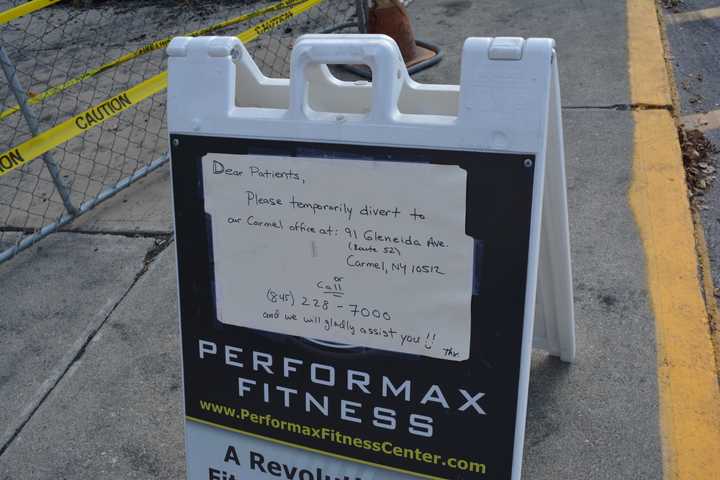 CAUTION
CAUTION
ON
Dear Patients,
Please temporarily divert to
our Carmel office at: 91 Gleneida Ave.
(Route 52)
Carmel, NY 10512
or
Call
(845) 228-7000
and we will gladly assist you!!
PERFORMAX
FITNESS
www.PerformaxFitnessCenter.com
A Revolu